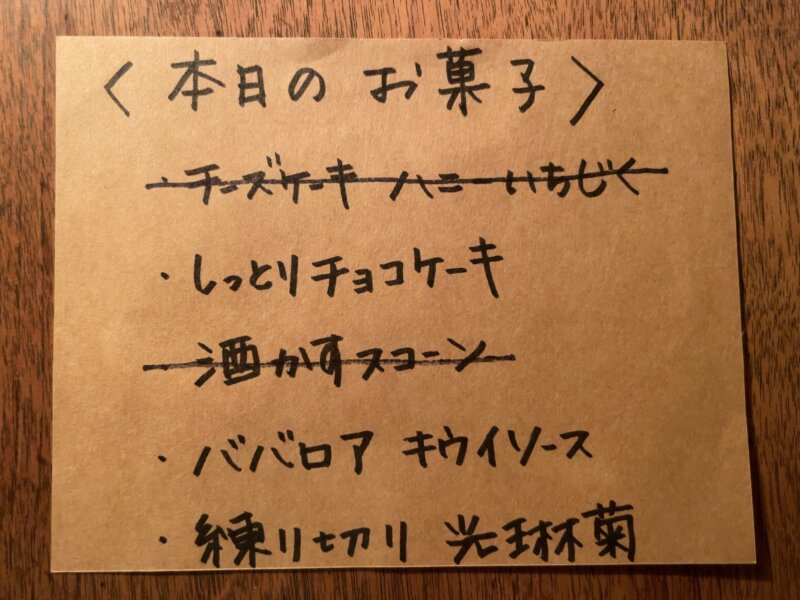 〈 本日の お菓子 〉
・チーズケーキ ハニーいちじく
・しっとりチョコケーキ
・酒かすスコーン
・ババロア キウイソース
・練り切り 光琳菊